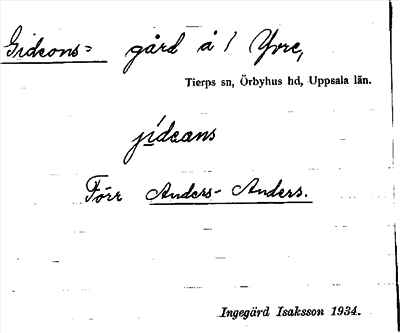 Gideons= gård å / Yvre,
Tierps sn, Örbyhus hd, Uppsala län.
jídeans
Förr Anders- Anders.
Ingegärd Isaksson 1934.